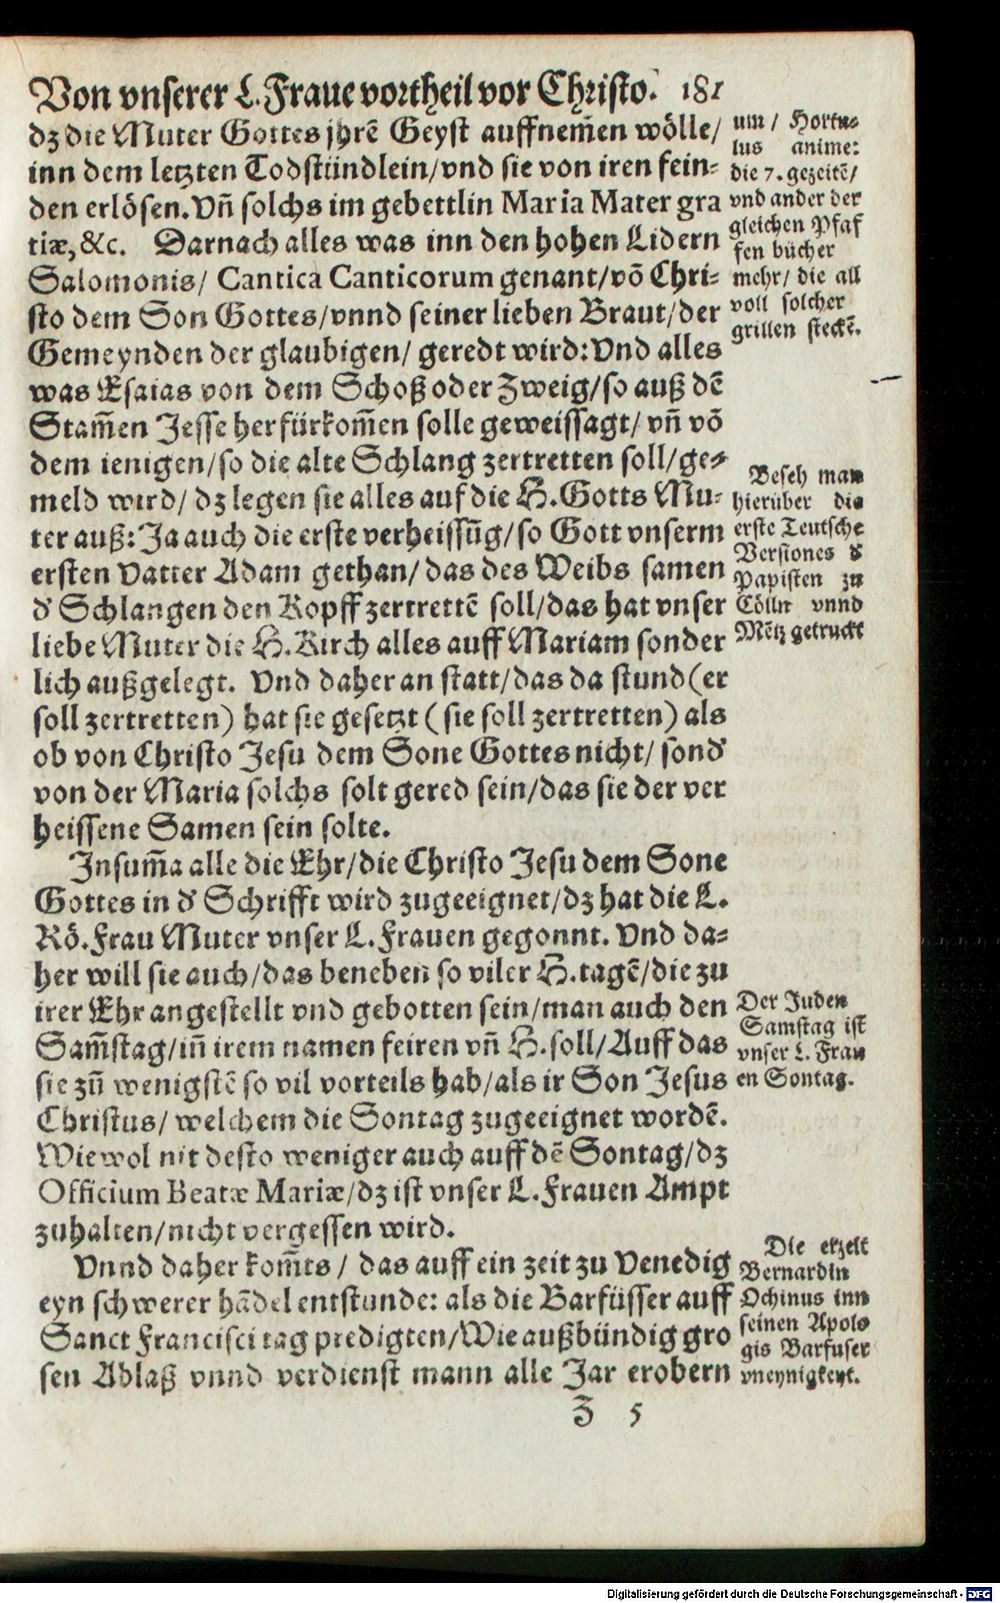 Von vnserer L. Fraue vortheil vor Christo. 181
dz die Muter Gottes jhrē Geyst auffnem̃en wölle/
inn dem letzten Todstündlein/vnd sie von iren fein-
den erlösen. Vñ solchs im gebettlin Maria Mater gra
tiæ, &c. Darnach alles was inn den hohen Lidern
Salomonis/ Cantica Canticorum genant/võ Chri-
sto dem Son Gottes/vnnd seiner lieben Braut/der
Gemeynden der glaubigen/ geredt wird: Vnd alles
was Esaias von dem Schoß oder Zweig/so auß dē
Stam̃en Jesse herfürkom̃en solle geweissagt/ vñ võ
dem ienigen/so die alte Schlang zertretten soll/ge-
meld wird/ dz legen sie alles auf die H. Gotts Mu-
ter auß: Ja auch die erste verheissũg/so Gott vnserm
ersten Vatter Adam gethan/ das des Weibs samen
d' Schlangen den Kopff zertrettē soll/das hat vnser
liebe Muter die H. Kirch alles auff Mariam sonder
lich außgelegt. Vnd daher an statt/das da stund (er
soll zertretten) hat sie gesetzt (sie soll zertretten) als
ob von Christo Jesu dem Sone Gottes nicht/ sond'
von der Maria solchs solt gered sein/das sie der ver
heissene Samen sein solte.
Insum̃a alle die Ehr/die Christo Jesu dem Sone
Gottes in d' Schrifft wird zugeeignet/dz hat die L.
Rö. Frau Muter vnser L. Frauen gegonnt. Vnd da-
her will sie auch/das beneben so viler H. tagē/die zu
irer Ehr angestellt vnd gebotten sein/man auch den
Sam̃stag/iñ irem namen feiren vñ H. soll/Auff das
sie zũ wenigstē so vil vorteils hab/als ir Son Jesus
Christus/ welchem die Sontag zugeeignet wordē.
Wiewol nit desto weniger auch auff dē Sontag/dz
Officium Beatæ Mariæ/dz ist vnser L. Frauen Ampt
zuhalten/nicht vergessen wird.
Vnnd daher kom̃ts/ das auff ein zeit zu Venedig
eyn schwerer hãdel entstunde: als die Barfüsser auff
Sanct Francisci tag predigten/Wie außbündig gro
sen Ablaß vnnd verdienst mann alle Jar erobern
Z 5
um/ Hortu-
lus anime:
die 7. gezeitē/
vnd ander der
gleichen Pfaf
fen bücher
mehr/ die all
voll solcher
grillen steckē.
Beseh man
hierüber die
erste Teutsche
Versiones d'
Papisten zu
Cölln vnnd
Mētz getruckt
Der Juden
Samstag ist
vnser L. Frau
en Sontag.
Die erzelt
Bernardin
Ochinus inn
seinen Apolo
gis Barfuser
vneynigkeyt.
Digitalisierung gefördert durch die Deutsche Forschungsgemeinschaft - DFG